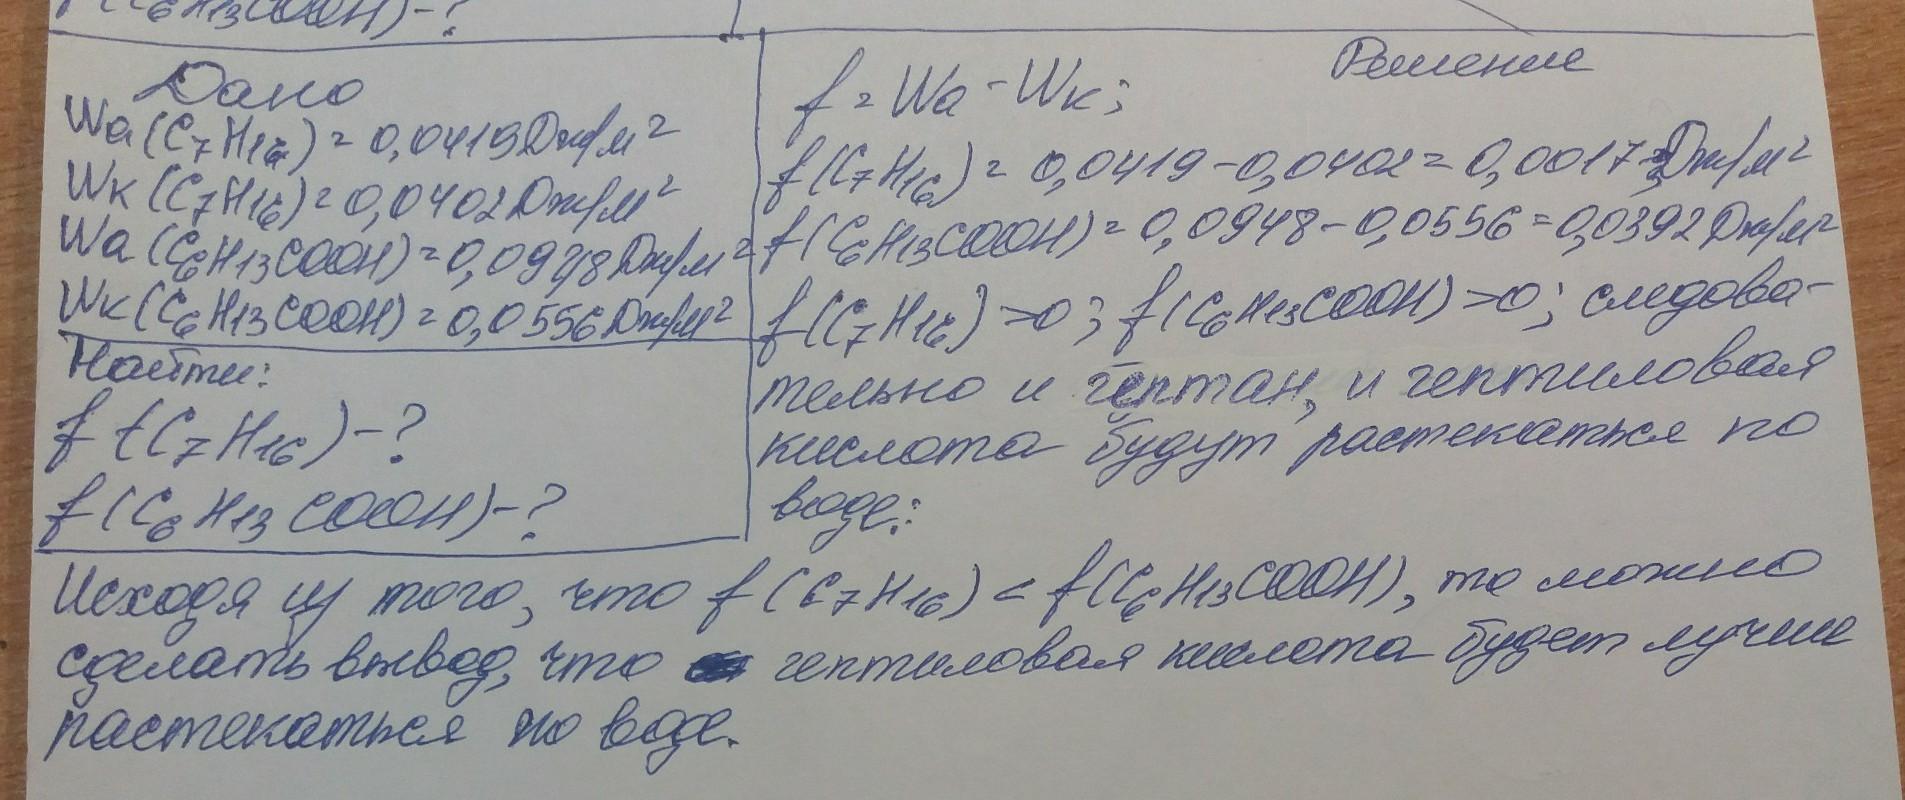 f(C₆H₁₃COOH)-?
Дано
Wa(C₇H₁₆) = 0,0419 Дж/м²
Wк(C₇H₁₆) = 0,0402 Дж/м²
Wa(C₆H₁₃COOH) = 0,0948 Дж/м²
Wк(C₆H₁₃COOH) = 0,0556 Дж/м²
Найти:
f(C₇H₁₆)-?
f(C₆H₁₃COOH)-?
Решение
f = Wa - Wк;
f(C₇H₁₆) = 0,0419-0,0402 = 0,0017 Дж/м²
f(C₆H₁₃COOH) = 0,0948-0,0556 = 0,0392 Дж/м²
f(C₇H₁₆) >0; f(C₆H₁₃COOH) >0; следова-
тельно и гептан, и гептиловая
кислота будут растекаться по
воде.:
Исходя из того, что f(C₇H₁₆) < f(C₆H₁₃COOH), то можно
сделать вывод, что гептиловая кислота будет лучше
растекаться по воде.